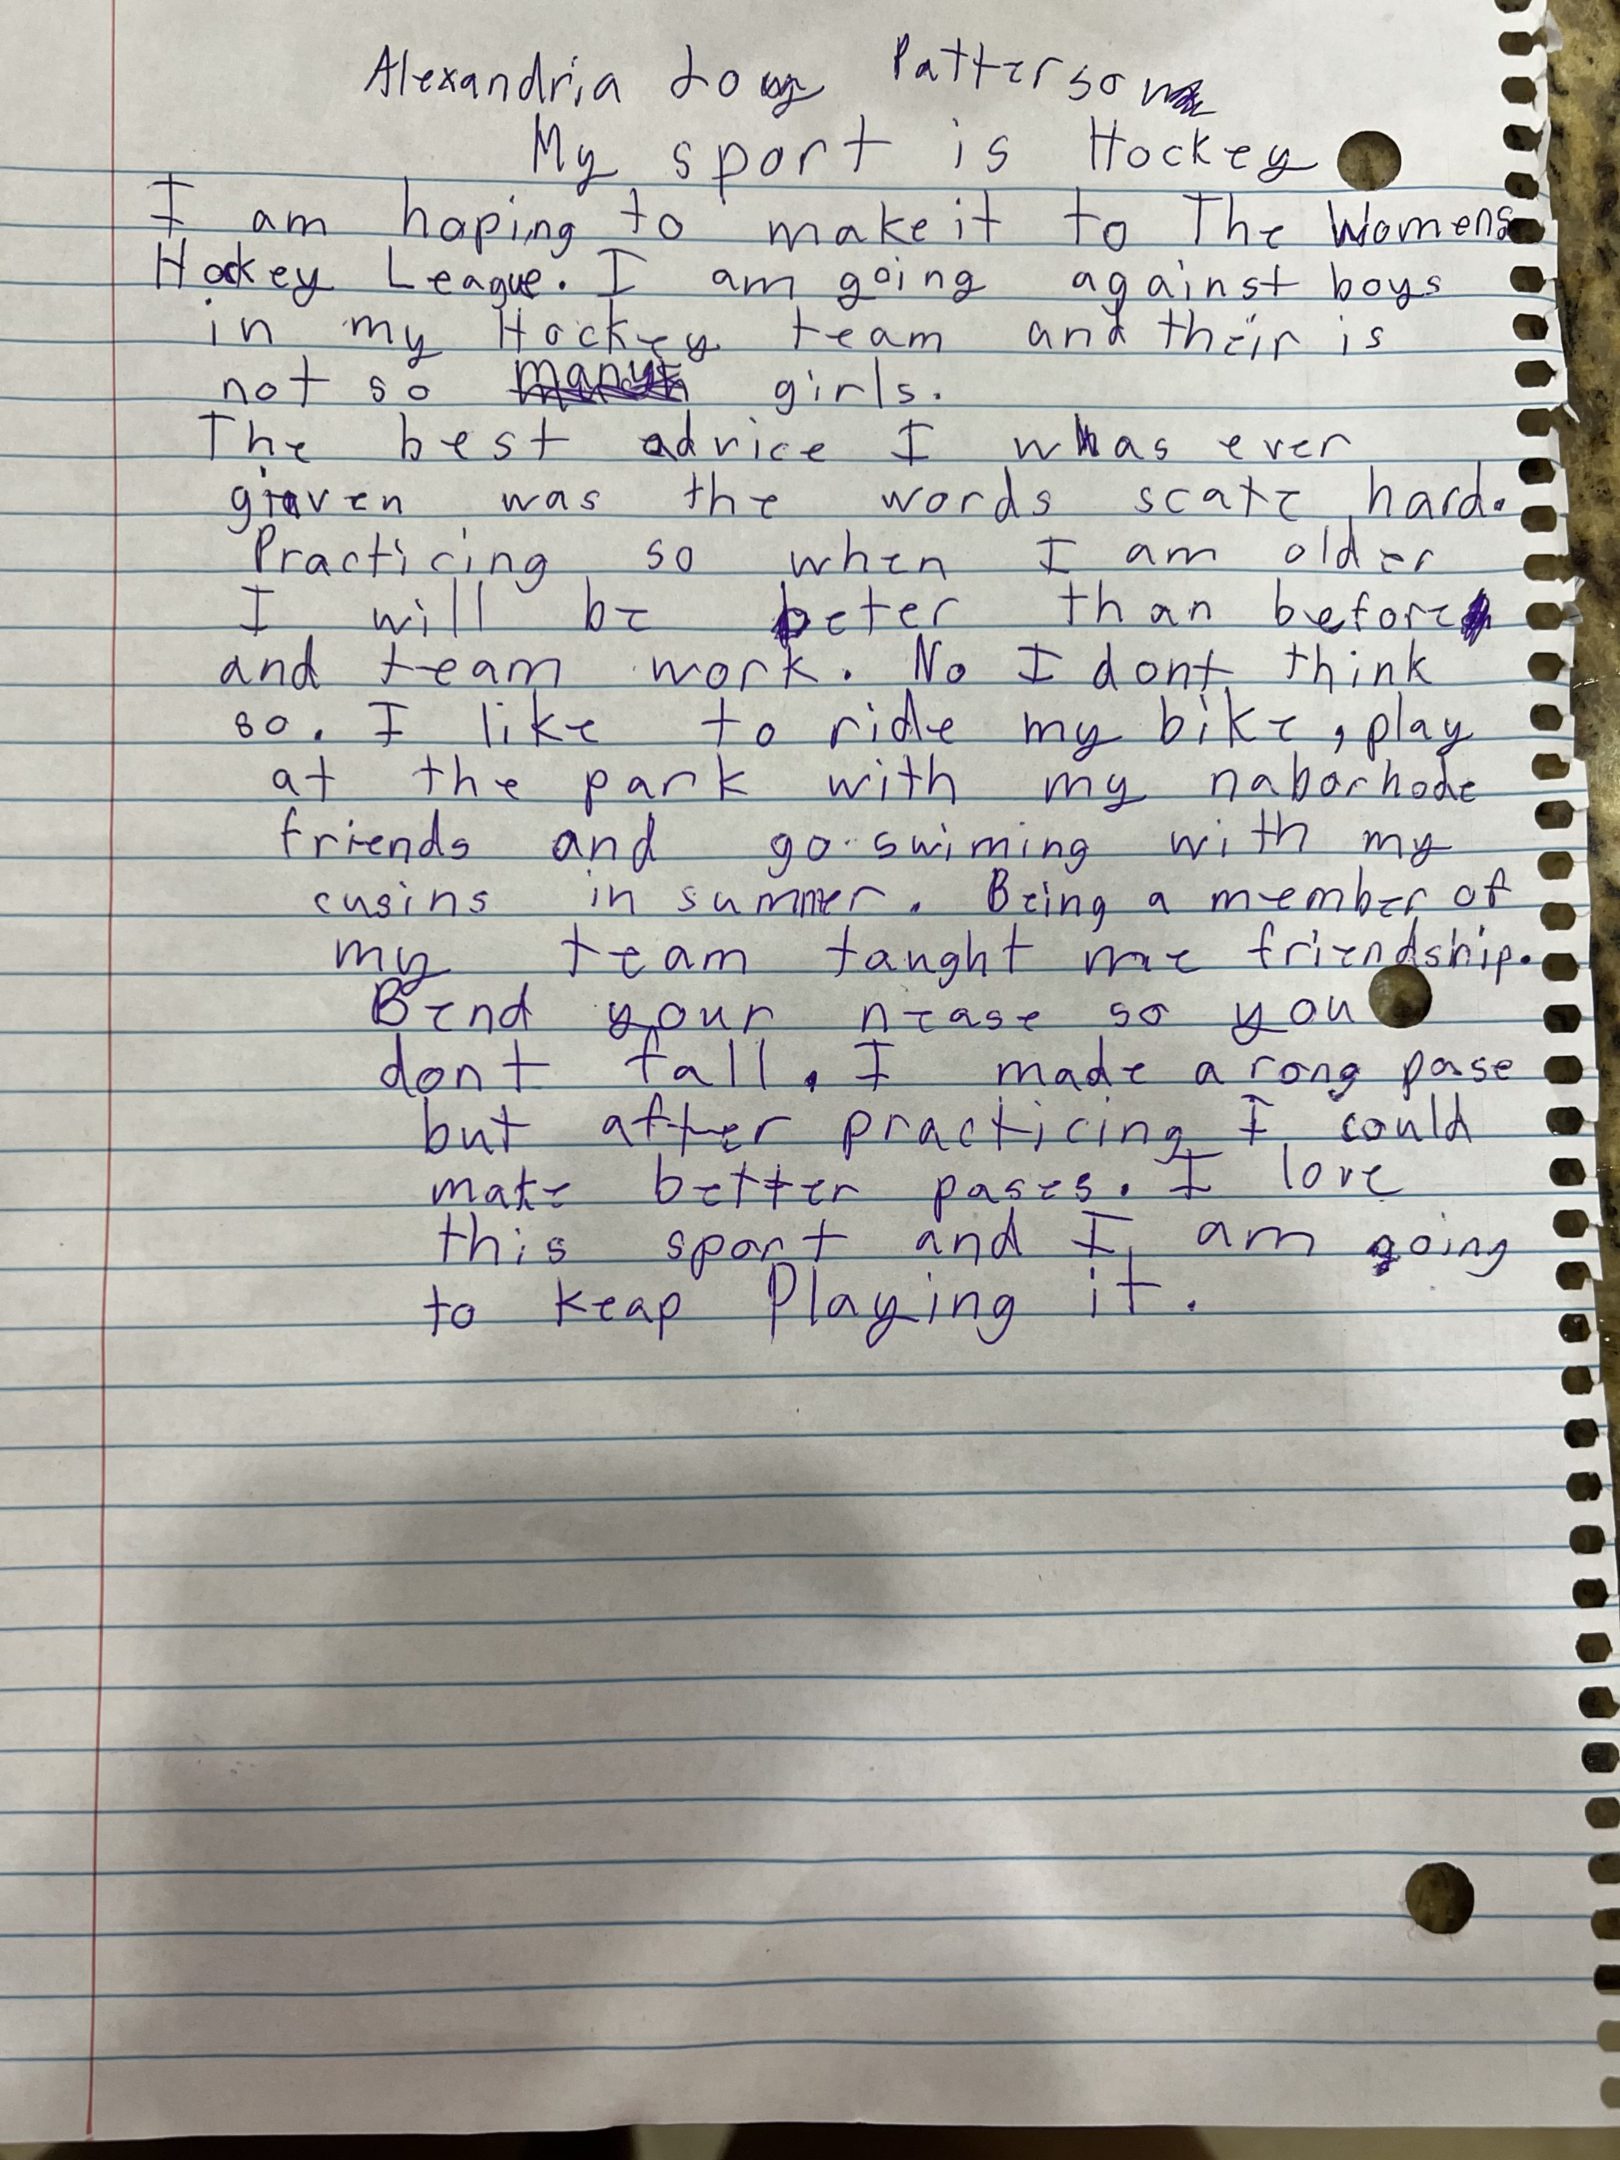 Alexandria Patterson
My sport is Hockey
I am hoping to make it to The Womens
Hockey League. I am going against boys
in my Hockey team and their is
not so many girls.
The best advice I was ever
given was the words scate hard.
Practicing so when I am older
I will be beter than before
and team work. No I dont think
so. I like to ride my bike, play
at the park with my naborhode
friends and go swiming with my
cusins in summer. Being a member of
my team taught me friendship.
Bend your nease so you
dont fall. I made a rong pase
but after practicing I could
make better pases. I love
this sport and I am going
to keap Playing it.